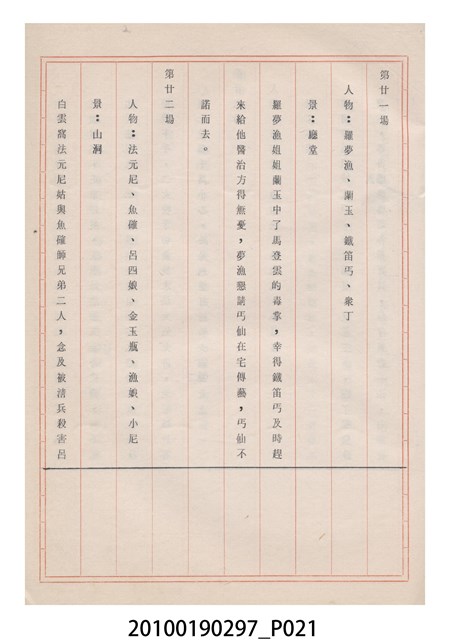 第廿一場
人物：羅夢漁、蘭玉、鐵笛丐、衆丁
景：廳堂
羅夢漁姐姐蘭玉中了馬登雲的毒掌，幸得鐵笛丐及時趕
來給他醫治方得無憂，夢漁懇請丐仙在宅傳藝，丐仙不
諾而去。
第廿二場
人物：法元尼、魚確、呂四娘、金玉瓶、漁娘、小尼
景：山洞
白雲窩法元尼姑與魚確師兄弟二人，念及被清兵殺害呂
20100190297_P021